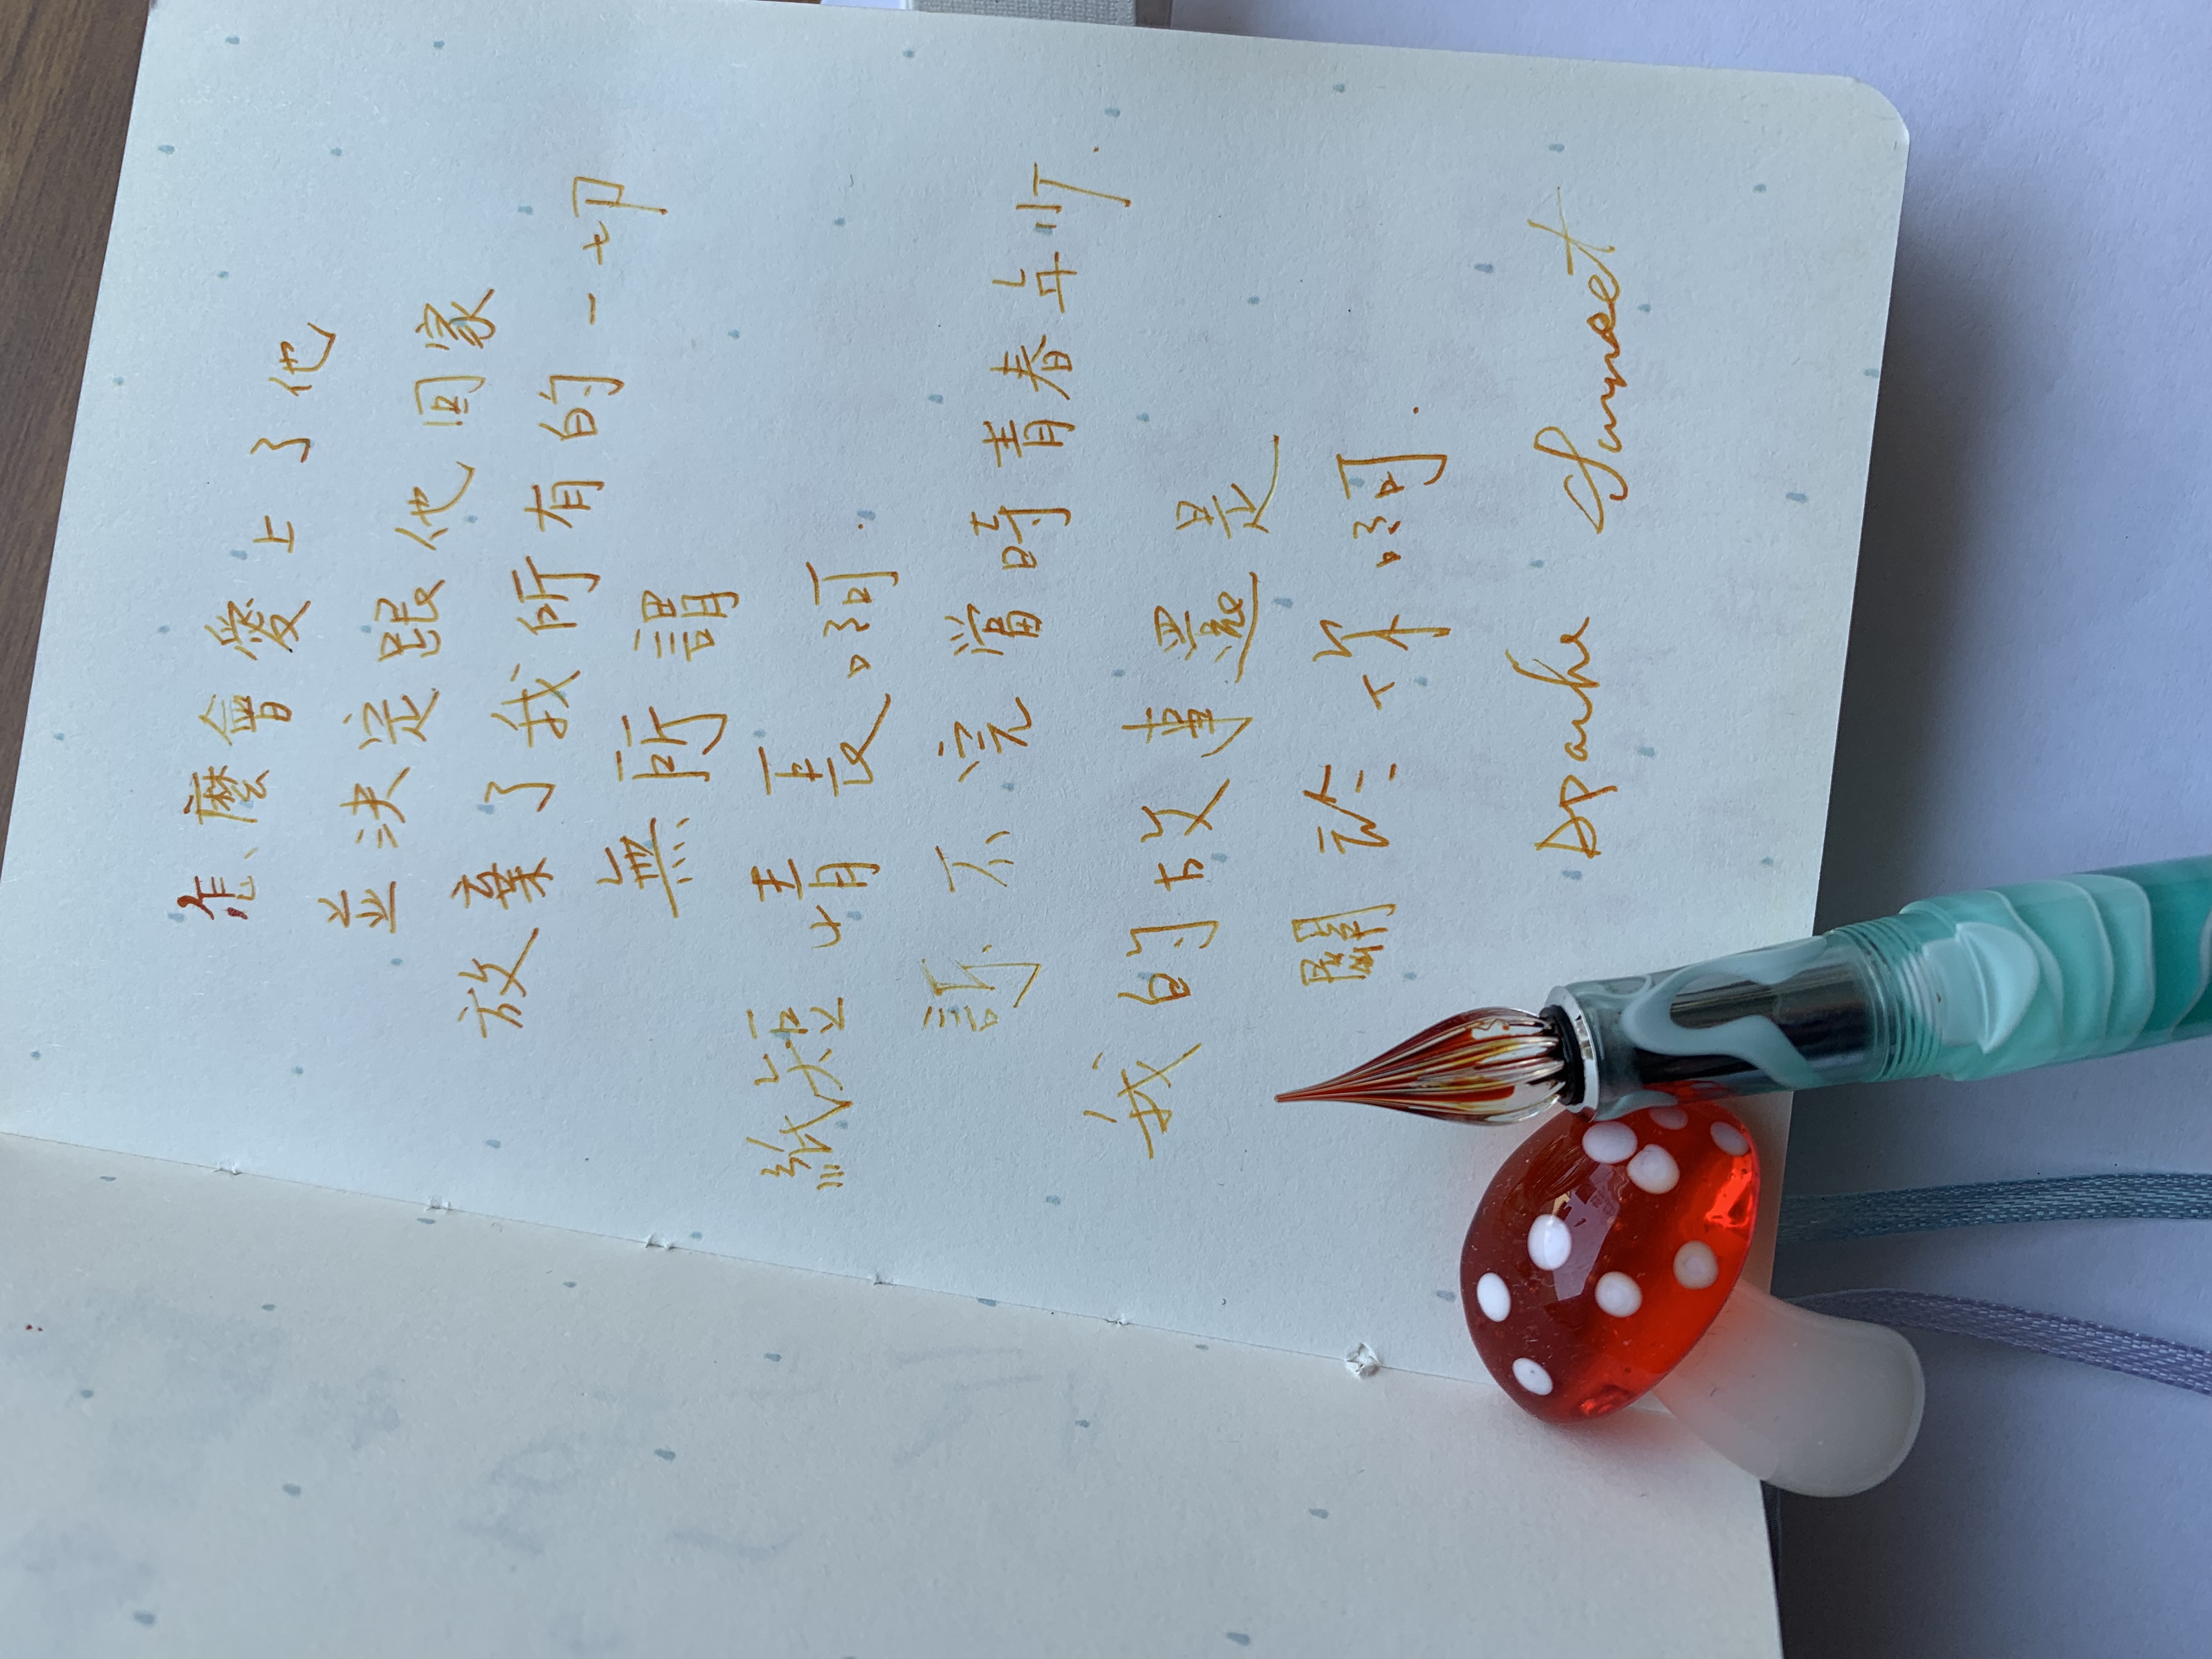 怎麼會愛上了他
並決定跟他回家
放棄了我所有的一切
無所謂
紙短情長啊.
訴不完當時青春年
我的故事還是
關於你啊.
Apache Sunset